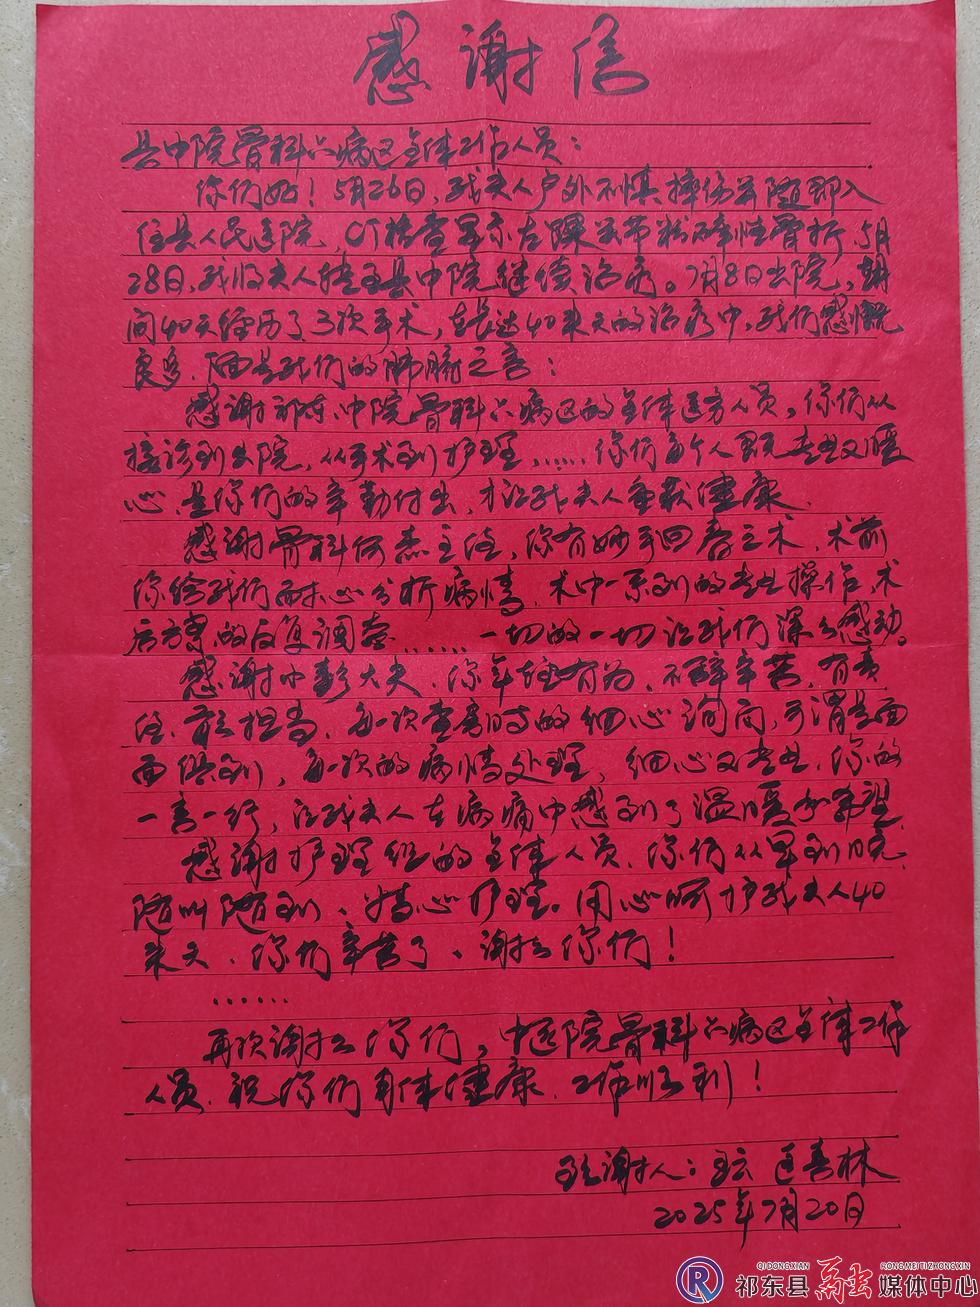 感谢信
县中院骨科六病区全体工作人员：
你们好！5月26日，我夫人户外不慎摔伤并随即入
住县人民医院，CT检查显示左踝关节粉碎性骨折，5月
28日，我将夫人转至县中院继续治疗。7月8日出院，期
间40天经历了3次手术，在长达40来天的治疗中，我们感慨
良多，下面是我们的肺腑之言：
感谢祁东中院骨科六病区的全体医务人员，你们从
接诊到出院，从手术到护理，……你们每个人既专业又暖
心，是你们的辛勤付出，才让我夫人重获健康.
感谢骨科何杰主任，你有妙手回春之术，术前
你给我们耐心分析病情，术中一系列的专业操作，术
后方案的反复调整……一切的一切让我们深受感动。
感谢小彭大夫，你年轻有为，不辞辛苦，有责
任、敢担当，每次查房时的细心询问，可谓是面
面俱到，每次的病情处理，细心又专业，你的
一言一行，让我夫人在病痛中感到了温暖和希望.
感谢护理组的全体人员，你们从早到晚，
随叫随到、精心护理。用心呵护我夫人40
来天，你们辛苦了、谢谢你们！
……
再次谢谢你们，中医院骨科六病区全体工作
人员，祝你们身体健康，工作顺利！
致谢人：匡春林
2025年7月20日
QIDONGXIAN RONGMEITIZHONGXIN
祁东县融媒体中心